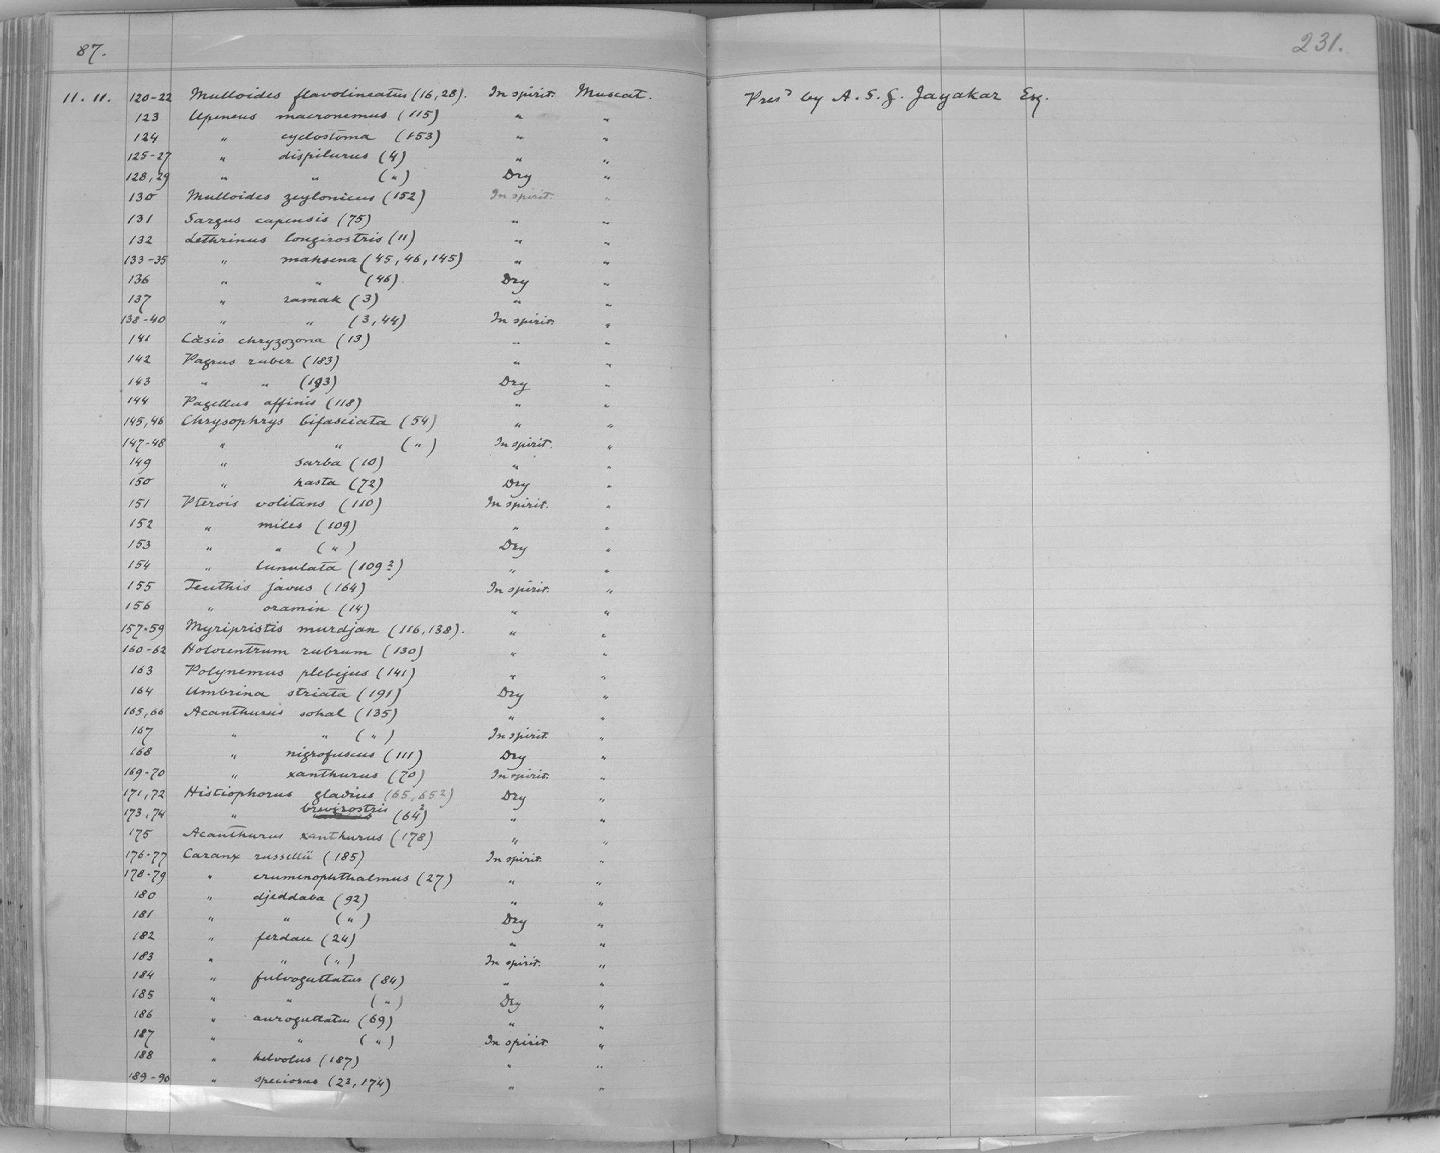 87.
231.
11. 11. 120-22 Mulloides flavolineatus (16, 28). In spirit. Muscat. Presd by A. S. G. Jayakar Esq.
123 Upeneus macronemus (115) " "
124 " cyclostoma (153) " "
125-27 " dispilurus (4) " "
128, 29 " " (") Dry "
130 Mulloides zeylonicus (152) In spirit. "
131 Sargus capensis (75) " "
132 Lethrinus longirostris (11) " "
133-35 " mahsena (45, 46, 145) " "
136 " " (46) Dry "
137 " ramak (3) " "
138-40 " " (3, 44) In spirit. "
141 Cäsio chryzozona (13) " "
142 Pagrus ruber (183) " "
143 " " (193) Dry "
144 Pagellus affinis (118) " "
145, 46 Chrysophrys bifasciata (54) " "
147-48 " " (") In spirit. "
149 " sarba (10) " "
150 " hasta (72) Dry "
151 Pterois volitans (110) In spirit. "
152 " miles (109) " "
153 " " (") Dry "
154 " lunulata (109?) " "
155 Teuthis javus (164) In spirit. "
156 " oramin (14) " "
157-59 Myripristis murdjan (116, 138). " "
160-62 Holocentrum rubrum (130) " "
163 Polynemus plebejus (141) " "
164 Umbrina striata (191) Dry "
165, 66 Acanthurus sohal (135) " "
167 " " (") In spirit. "
168 " nigrofuscus (111) Dry "
169-70 " xanthurus (70) In spirit. "
171, 72 Histiophorus gladius (65, 65?) Dry "
173, 74 " brevirostris (64?) " "
175 Acanthurus xanthurus (178) " "
176-77 Caranx russellii (185) In spirit. "
178-79 " crumenophthalmus (27) " "
180 " djeddaba (92) " "
181 " " (") Dry "
182 " ferdau (24) " "
183 " " (") In spirit. "
184 " fulvoguttatus (84) " "
185 " " (") Dry "
186 " auroguttatus (69) " "
187 " " (") In spirit "
188 " helvolus (187) " "
189-90 " speciosus (23, 174) " "